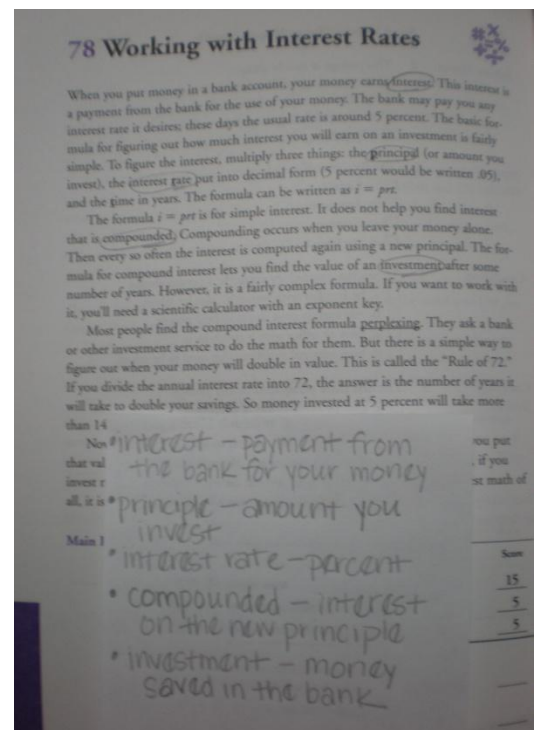 78 Working with Interest Rates
When you put money in a bank account, your money earns interest. This interest is
a payment from the bank for the use of your money. The bank may pay you any
interest rate it desires; these days the usual rate is around 5 percent. The basic for-
mula for figuring out how much interest you will earn on an investment is fairly
simple. To figure the interest, multiply three things: the principal (or amount you
invest), the interest rate put into decimal form (5 percent would be written .05),
and the time in years. The formula can be written as i = prt.
The formula i = prt is for simple interest. It does not help you find interest
that is compounded. Compounding occurs when you leave your money alone.
Then every so often the interest is computed again using a new principal. The for-
mula for compound interest lets you find the value of an investment after some
number of years. However, it is a fairly complex formula. If you want to work with
it, you'll need a scientific calculator with an exponent key.
Most people find the compound interest formula perplexing. They ask a bank
or other investment service to do the math for them. But there is a simple way to
figure out when your money will double in value. This is called the "Rule of 72."
If you divide the annual interest rate into 72, the answer is the number of years it
will take to double your savings. So money invested at 5 percent will take more
than 14
you put
that val
, if you
invest
st math of
all, it is
Main
Score
15
5
5
• interest - payment from
the bank for your money
• principle - amount you
invest
• interest rate - percent
• compounded - interest
on the new principle
• investment - money
saved in the bank